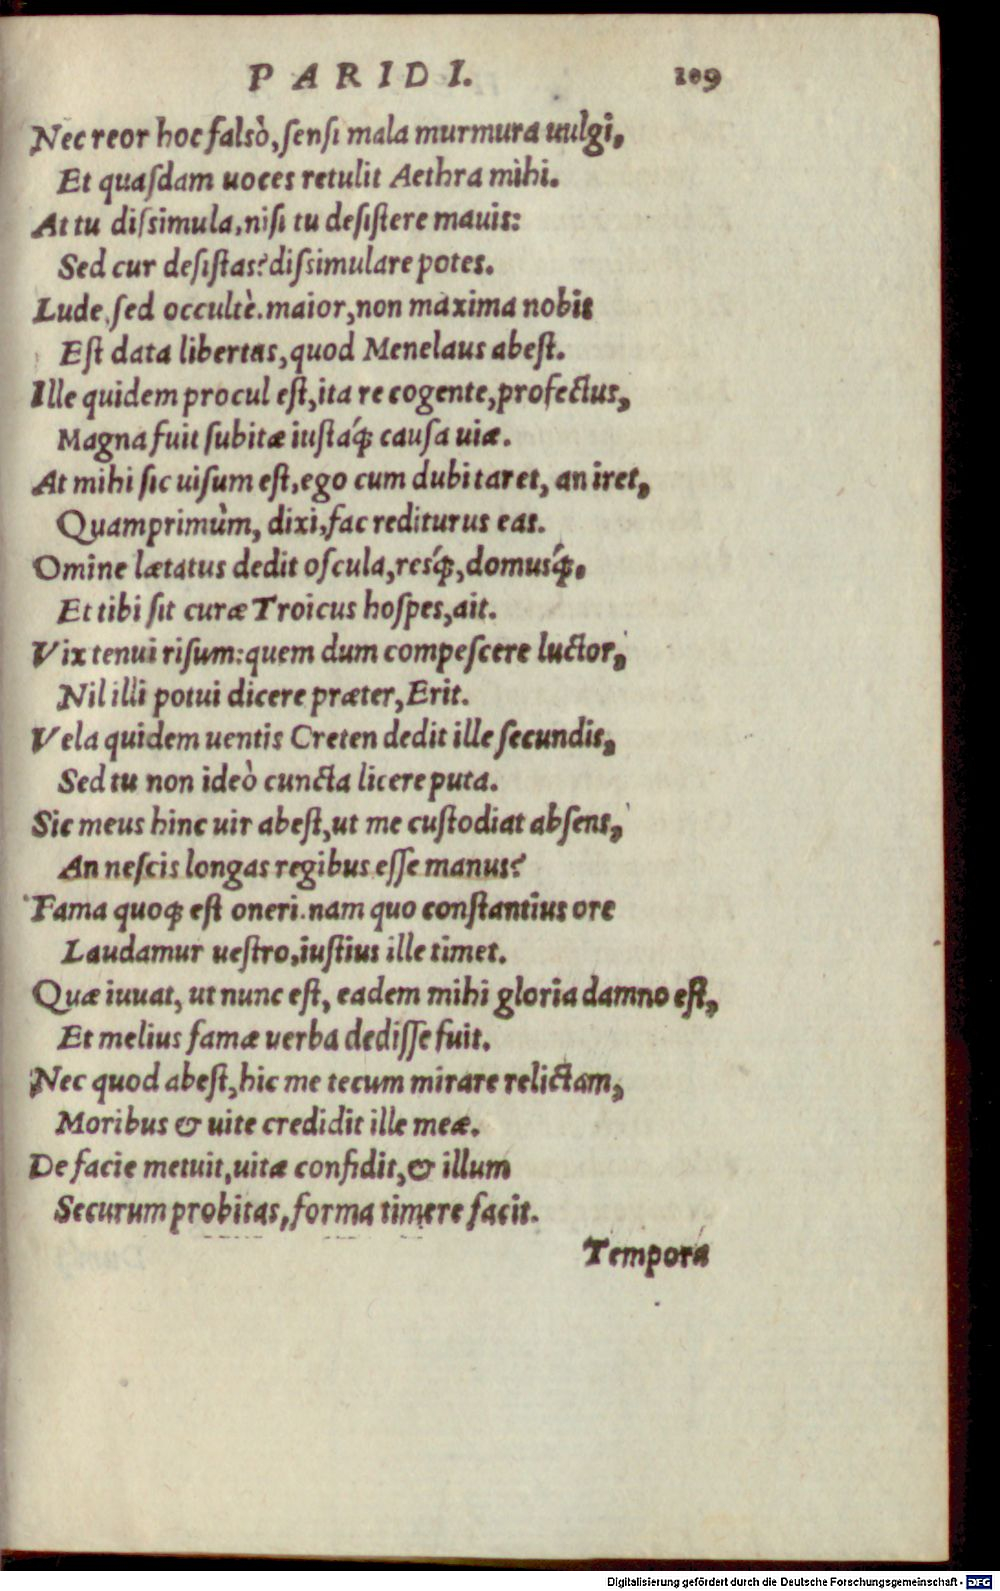 PARIDI. 109
Nec reor hoc falsò, sensi mala murmura uulgi,
Et quasdam uoces retulit Aethra mihi.
At tu dissimula, nisi tu desistere mauis:
Sed cur desistas? dissimulare potes.
Lude, sed occultè. maior, non maxima nobis
Est data libertas, quod Menelaus abest.
Ille quidem procul est, ita re cogente, profectus,
Magna fuit subitæ iustáq; causa uiæ.
At mihi sic uisum est, ego cum dubitaret, an iret,
Quamprimùm, dixi, fac rediturus eas.
Omine lætatus dedit oscula, resq́;, domusq́;,
Et tibi sit curæ Troicus hospes, ait.
Vix tenui risum: quem dum compescere luctor,
Nil illi potui dicere præter, Erit.
Vela quidem uentis Creten dedit ille secundis,
Sed tu non ideò cuncta licere puta.
Sic meus hinc uir abest, ut me custodiat absens,
An nescis longas regibus esse manus?
Fama quoq; est oneri. nam quo constantius ore
Laudamur uestro, iustius ille timet.
Quæ iuuat, ut nunc est, eadem mihi gloria damno est,
Et melius famæ uerba dedisse fuit.
Nec quod abest, hic me tecum mirare relictam,
Moribus & uite credidit ille meæ.
De facie metuit, uitæ confidit, & illum
Securum probitas, forma timere facit.
Tempora
Digitalisierung gefördert durch die Deutsche Forschungsgemeinschaft - DFG